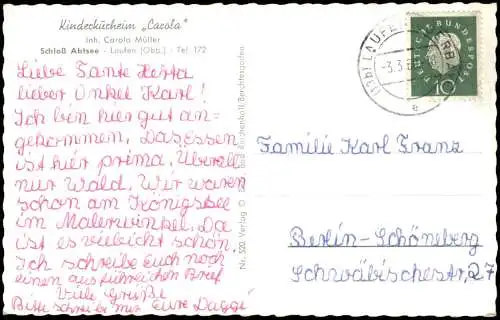 Kinderkurheim „Carola"
Inh. Carola Müller
Schloß Abtsee - Laufen (Obb.) - Tel 172
Liebe Tante Herta
lieber Onkel Karl!
Ich bin hier gut an-
gekommen, Das Essen
ist hier prima, Überall
nur Wald. Wir waren
schon am Königssee
im Malerwinkel. Da
ist es vielleicht schön.
Ich schreibe Euch noch
einen ausführlichen Brief
Viele Grüße
Bitte schreibe mir Eure Daggi
Nr. 520 Verlag ©
Bad Reichenhall/Berchtesgaden
(13b) LAUFEN
-3.3.6
DEUTSCHE BUNDESPOST
10
Familie Karl Franz
Berlin-Schöneberg
Schwäbischestr, 27